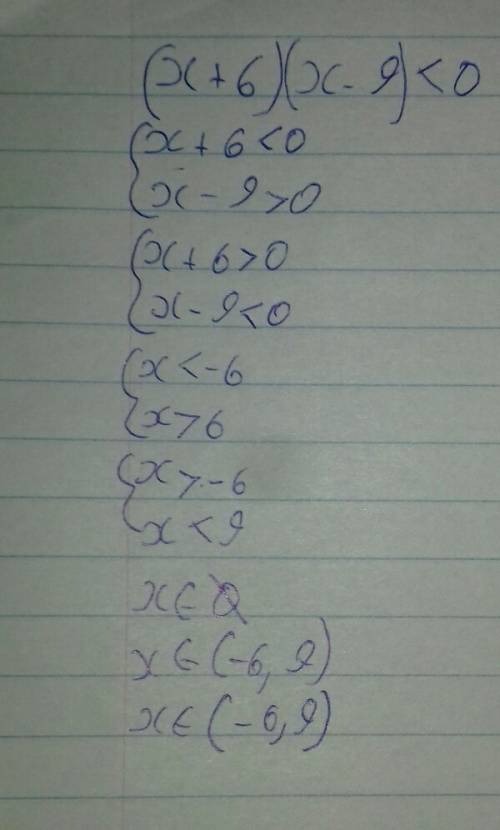 (x+6)(x-9)<0
{x+6<0
x-9>0
{x+6>0
x-9<0
{x<-6
x>6
{x>-6
x<9
x∈Ø
x∈(-6,9)
x∈(-6,9)